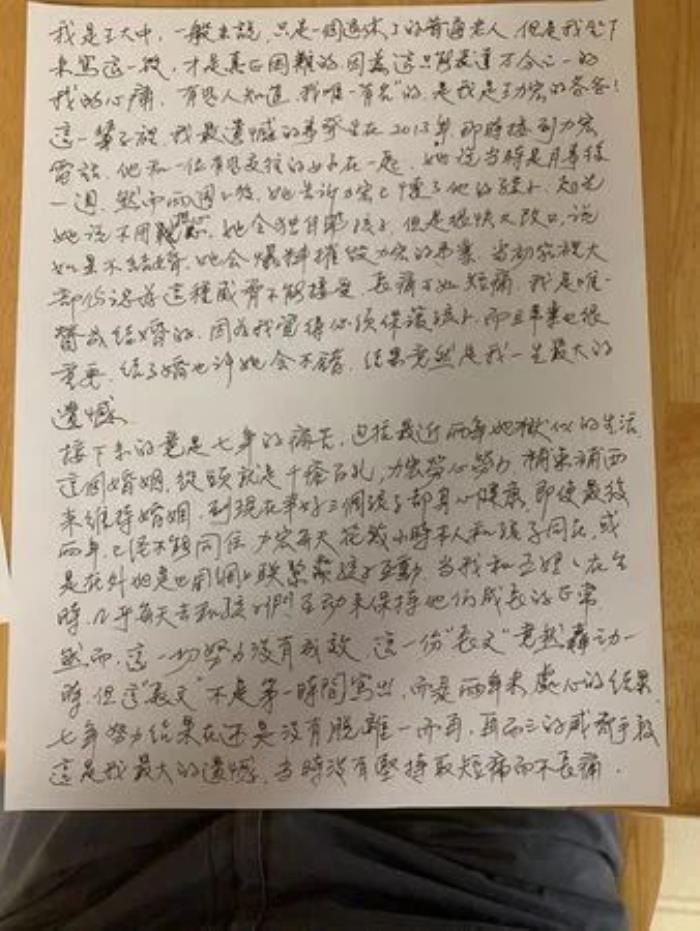 我是王大中,一般来說,只是一個退休了的普通老人,但是我坐下
來寫這一段,才是真正困難的,因為這只能表達万分之一的
我的心痛。有些人知道,我唯一有"名"的,是我是王力宏的爸爸!
這一輩子裡,我最遺憾的事發生在2013年,即時接到力宏
電話,他和一位有些交往的女子在一起,她說当時是月事後
一週,然而两週之後,她告訴力宏已懷了他的孩子,起先
她說不用担心,她会独自帶孩子,但是很快又改口,說
如果不結婚,她会爆料摧毀力宏的事業。当初家裡大
部份認為這種威脅不能接受,長痛不如短痛,我是唯一
贊成結婚的,因为我覚得必須保護孩子,而且事業也很
重要,結了婚也许她会不錯,結果竟然是我一生最大的
遺憾。
接下来的竟是七年的痛苦,包括最近两年地獄似的生活
這個婚姻,從頭就是千瘡百孔,力宏勞心勞力,補東補西
来維持婚姻,到現在幸好三個孩子都身心健康,即使最後
两年,已経不能同住,力宏每天花幾小時本人和孩子同在,或
是在外地是也用網上联繫和孩子互動,当我和王媽媽在台
時,几乎每天去和孩子們互动来保持他们成長的正常
然而,這一切努力没有成效,這一份"長文"竟然轟动一
時,但這"長文"不是第一時間寫出,而是两年来處心的結果
七年努力結果在还是没有脱離一而再,再而三的威脅手段
這是我最大的遺憾,当時没有堅持取短痛而不長痛.